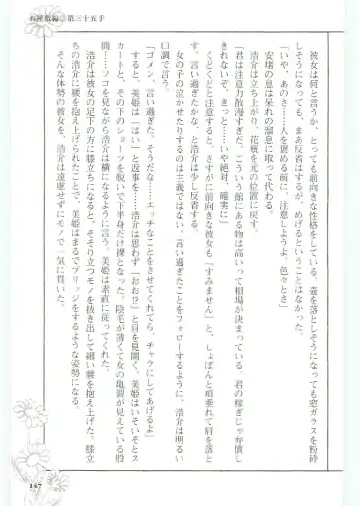 座敷編◎第三十五手
彼女は何と言うか、とっても前向きな性格をしている。壺を落としそうになっても窓ガラスを粉砕
しそうになっても、まあ反省はするが、めげるということはなかった。
「いや、あのさ……人を褒める前に、注意しようよ、色々とさ」
安堵の息は呆れの溜息に取って代わる。
浩介は立ち上がり、花瓶を元の位置に戻す。
「君は注意力散漫すぎだ。こういう館にある物は高いって相場が決まっている。君の稼ぎじゃ弁償し
きれないぞ、きっと。……いや絶対、確実に」
くどくどと注意すると、さすがに前向きな彼女も「すみません」と、しょぼんと項垂れて肩を落と
す。言い過ぎたかな、と浩介は少し反省する。
女の子の泣かせたりするのは主義ではない。言い過ぎたことをフォローするように、浩介は明るい
口調で言う。
「ゴメン、言い過ぎた。そうだな……エッチなことをさせてくれてら、チャラにしてあげるよ」
すると、美姫は「はい」と返事を……浩介は思わず「おお!?」と目を見開く。美姫はいそいそとス
カートと、その下のショーツを脱いで下半身だけ裸となった。陰毛が薄くて女の亀裂が見えている股
間……ソコを見ながら浩介は横になるように言う。美姫は素直に従ってくれた。
浩介は彼女の足下の方に膝立ちになると、そそり立つモノを抜き出して細い腰を抱え上げた。膝立
ちの浩介に腰を抱え上げられたことで、美姫はまるでブリッジをするような姿勢になる。
そんな体勢の彼女を、浩介は遠慮せずにモノで一気に貫いた。
147